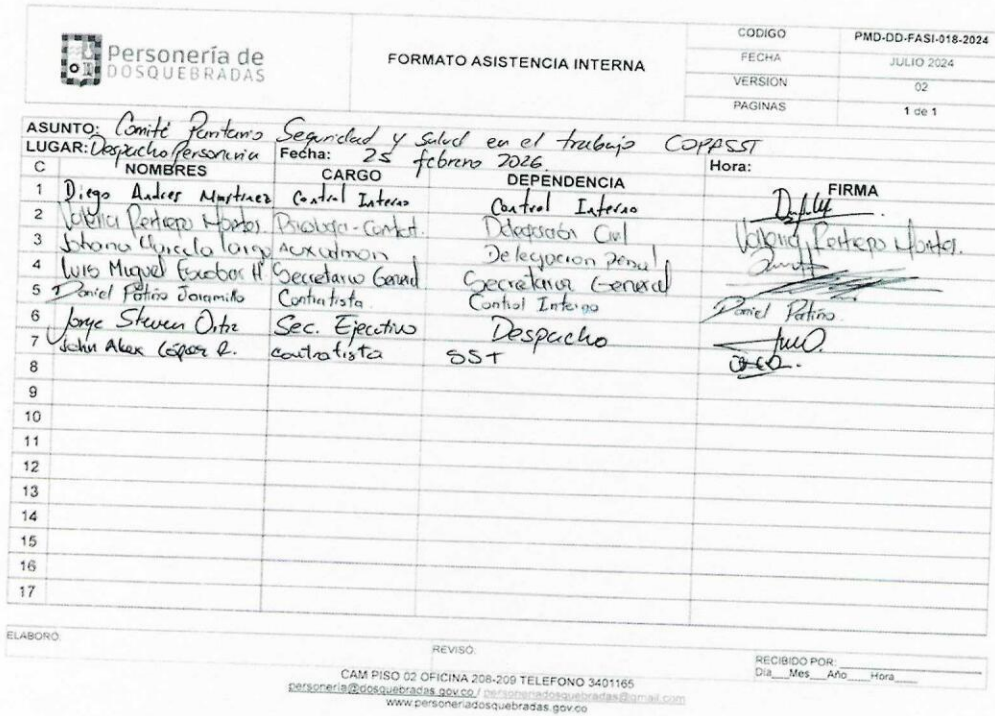 Personería de
DOSQUEBRADAS
FORMATO ASISTENCIA INTERNA
CODIGO PMD-DD-FASI-018-2024
FECHA JULIO 2024
VERSION 02
PAGINAS 1 de 1
ASUNTO: Comité Paritario Seguridad y Salud en el trabajo COPASST
LUGAR: Despacho Personeria Fecha: 25 febrero 2026. Hora:
C NOMBRES CARGO DEPENDENCIA FIRMA
1 Diego Andres Martinez Control Interno Control Interno
2 Valeria Restrepo Psicologa - Contrat. Delegación Civil Valeria Restrepo
3 Johana Marcela Auxadmon Delegacion Penal
4 Luis Miguel Escobar H Secretario General Secretaria General
5 Daniel Patiño Jaramillo Contratista Control Interno Daniel Patiño
6 Jorge Steven Ortiz Sec. Ejecutivo Despacho
7 John Alex López R. contratista SST
8
9
10
11
12
13
14
15
16
17
ELABORÓ: REVISÓ: RECIBIDO POR:
Dia___Mes___Año___Hora___
CAM PISO 02 OFICINA 208-209 TELEFONO 3401165
personeria@dosquebradas.gov.co / personeriadosquebradas@gmail.com
www.personeriadosquebradas.gov.co